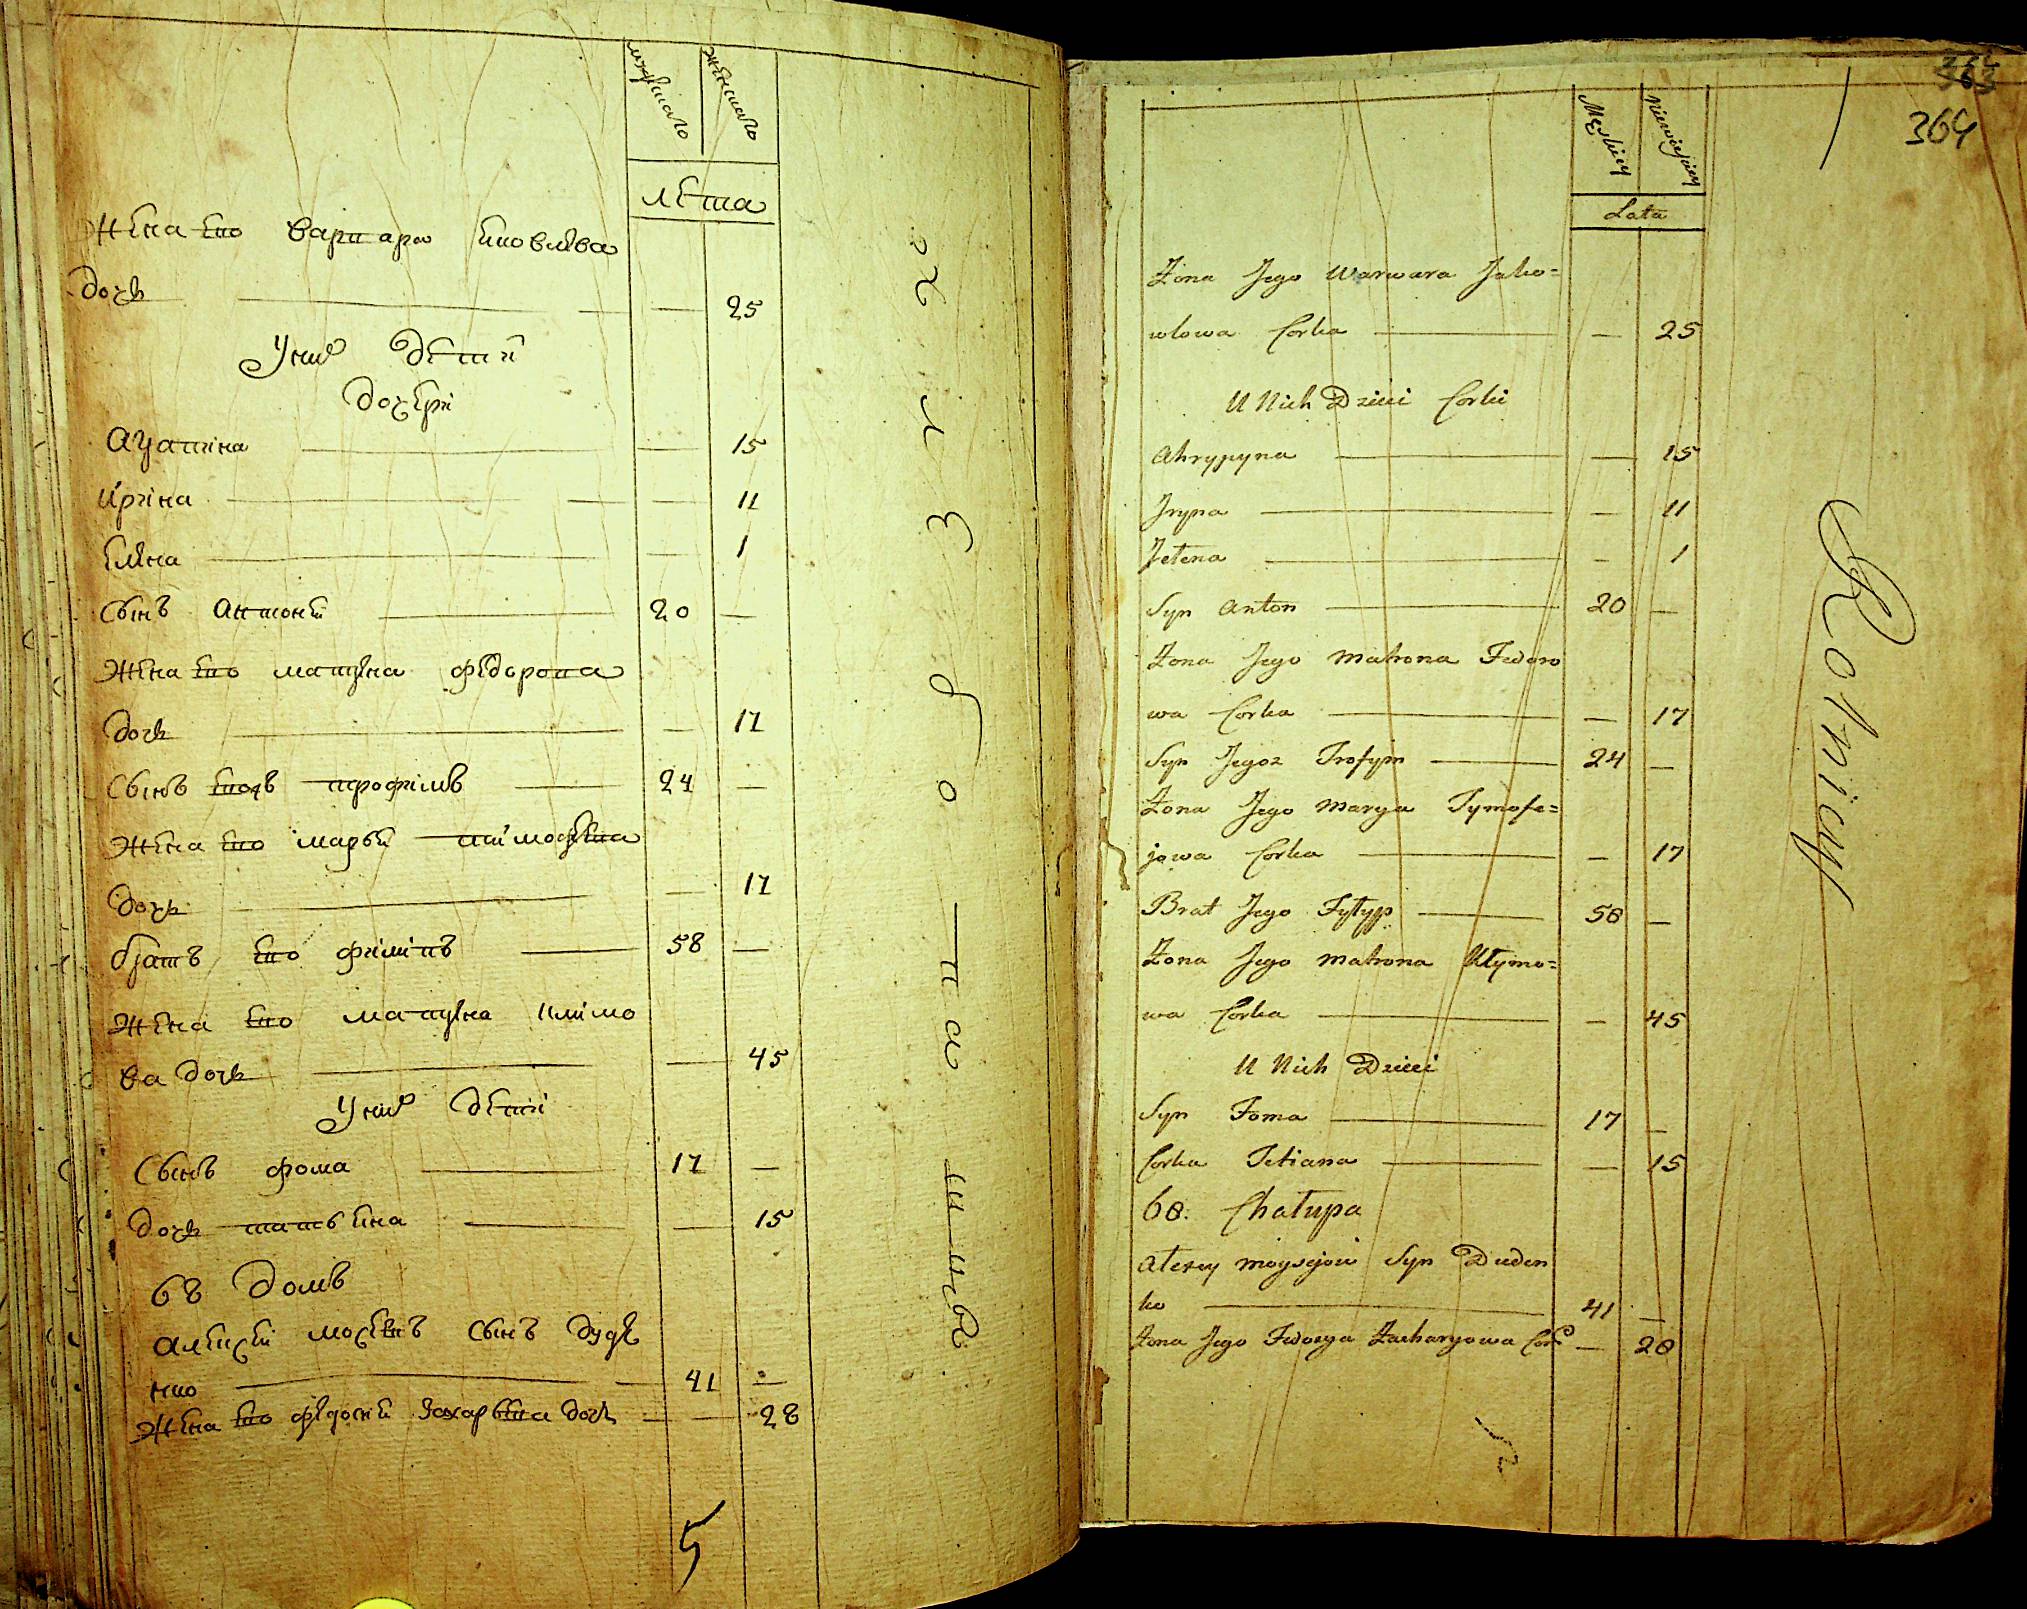 мужеска женска
лѣта
Жена его варвара яковлева
дочь — 25
У них детей
дочери
Агапіна — 15
Ирина — 11
Елена — 1
Сынъ Антоній 20 —
Жена его матрена федорова
дочь — 17
Сынъ еговъ трофімъ 24 —
Жена его марья тимофеева
дочь — 17
братъ его филипъ 58 —
Жена его матрена климо
ва дочь — 45
У них детей
Сынъ фома 17 —
дочь татьяна — 15
68 Домъ
Алексей мосеевъ сынъ дуде
нко 41 —
Жена его федосия Захарьева дочь — 28
5
хлебопашцы
364
Męskiey Niewieściey
Lata
Żona Jego Warwara Jako=
wlowa Corka — 25
U Nich Dzieci Corki
Ahrypyna — 15
Jryna — 11
Jełena — 1
Syn Anton 20 —
Żona Jego Matrona Fedoro
wa Corka — 17
Syn Jegoż Trofym 24 —
Żona Jego Marya Tymofe=
jowa Corka — 17
Brat Jego Fyłyp 58 —
Żona Jego Matrona Kłymo=
wa Corka — 45
U Nich Dzieci
Syn Foma 17 —
Corka Tetiana — 15
68. Chałupa
Alexey Moysejow Syn Duden
ko 41 —
Żona Jego Fedosya Zacharyowa Cor — 28
Rolnicy